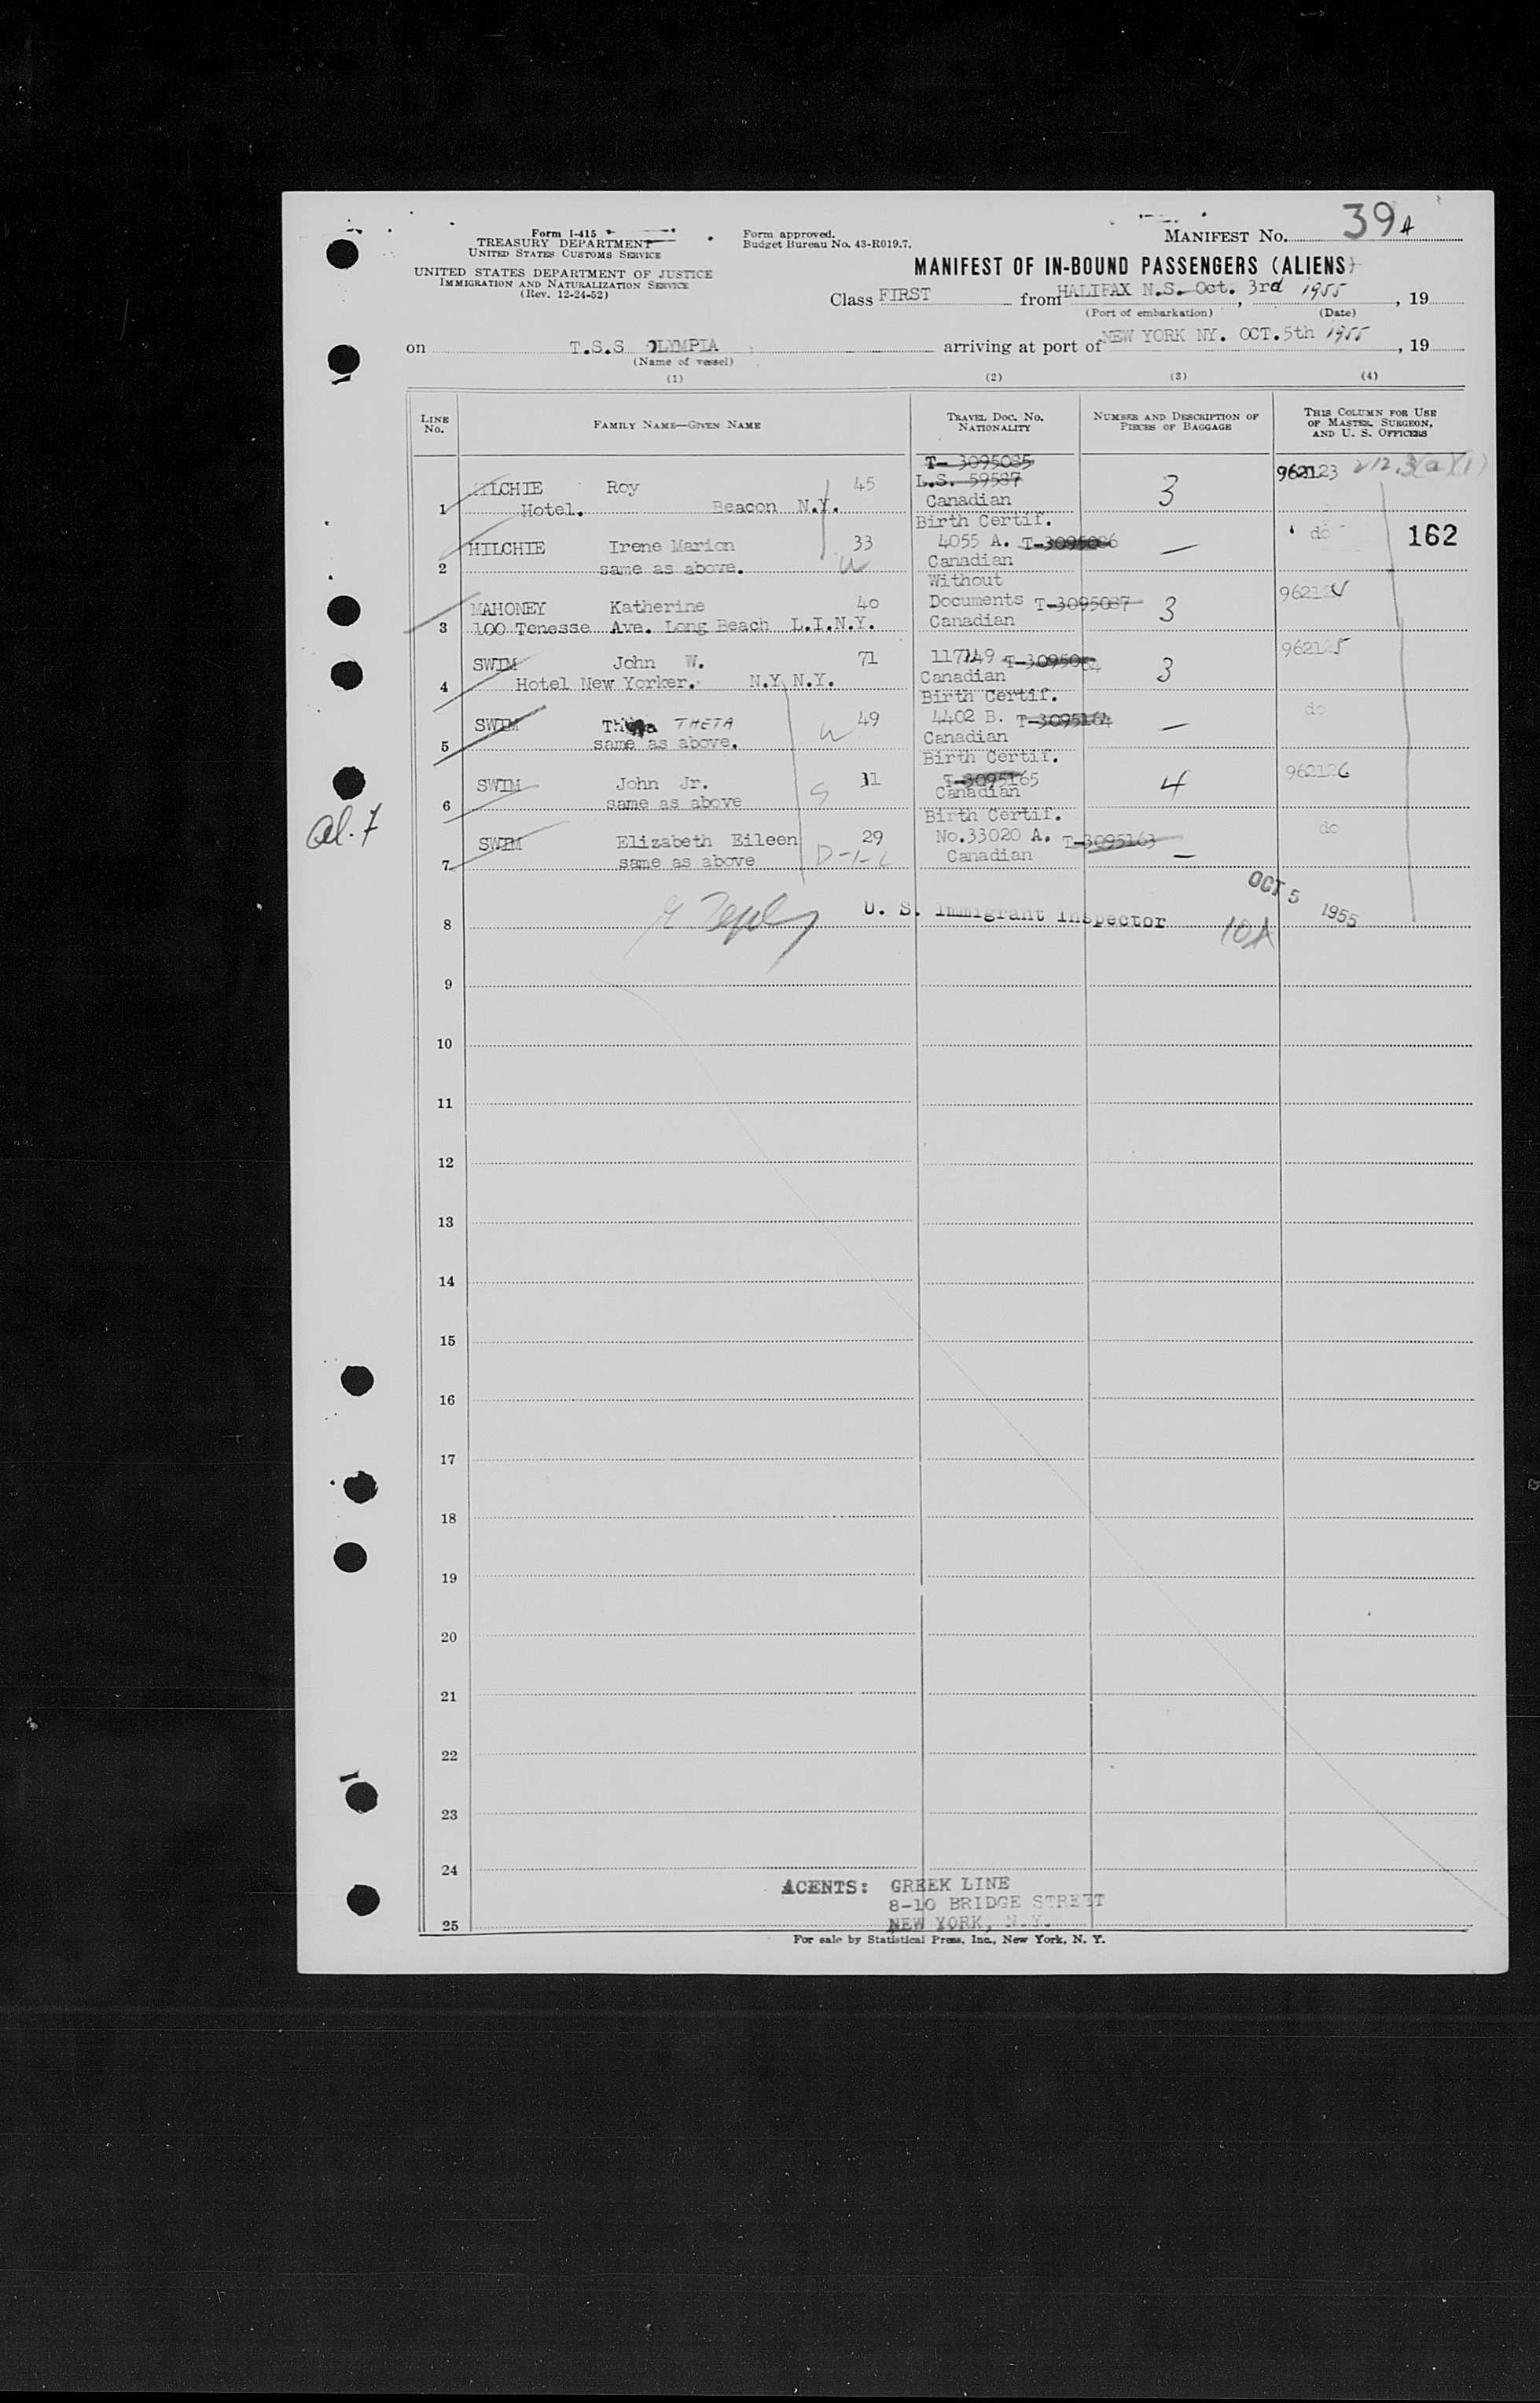 39 A
Form I-415
TREASURY DEPARTMENT
UNITED STATES CUSTOMS SERVICE
UNITED STATES DEPARTMENT OF JUSTICE
IMMIGRATION AND NATURALIZATION SERVICE
(Rev. 12-24-52)
Form approved.
Budget Bureau No. 43-R019.7.
MANIFEST No.
MANIFEST OF IN-BOUND PASSENGERS (ALIENS)
Class FIRST from HALIFAX N.S. Oct. 3rd 1955, 19
(Port of embarkation) (Date)
on T.S.S OLYMPIA arriving at port of NEW YORK NY. OCT. 5th 1955, 19
(Name of vessel)
(1) (2) (3) (4)
LINE No. FAMILY NAME—GIVEN NAME TRAVEL DOC. No. NATIONALITY NUMBER AND DESCRIPTION OF PIECES OF BAGGAGE THIS COLUMN FOR USE OF MASTER, SURGEON, AND U. S. OFFICERS
T- 3095085
HILCHIE Roy 45 L.S. 59587 3 962123 212.3(a)(1)
1 Hotel. Beacon N.Y. Canadian
Birth Certif.
HILCHIE Irene Marion 33 4055 A. T-3095086 — do 162
2 same as above. W Canadian
Without
MAHONEY Katherine 40 Documents T-3095087 3 962124
3 100 Tenesse Ave. Long Beach L.I.N.Y. Canadian
SWIM John W. 71 117149 3 962125
4 Hotel New Yorker. N.Y. N.Y. Canadian
Birth Certif.
SWIM THETA 49 4402 B. T-3095164 — do
5 same as above. W Canadian
Birth Certif.
SWIM John Jr. 31 T-3095165 4 962126
6 same as above S Canadian
Birth Certif.
SWIM Elizabeth Eileen 29 No.33020 A. T-3095163 — do
7 same as above Canadian
OCT 5 1955
8 U. S. Immigrant Inspector 10A
9
10
11
12
13
14
15
16
17
18
19
20
21
22
23
24
AGENTS: GREEK LINE
8-10 BRIDGE STREET
25 NEW YORK, N.Y.
For sale by Statistical Press, Inc., New York, N. Y.